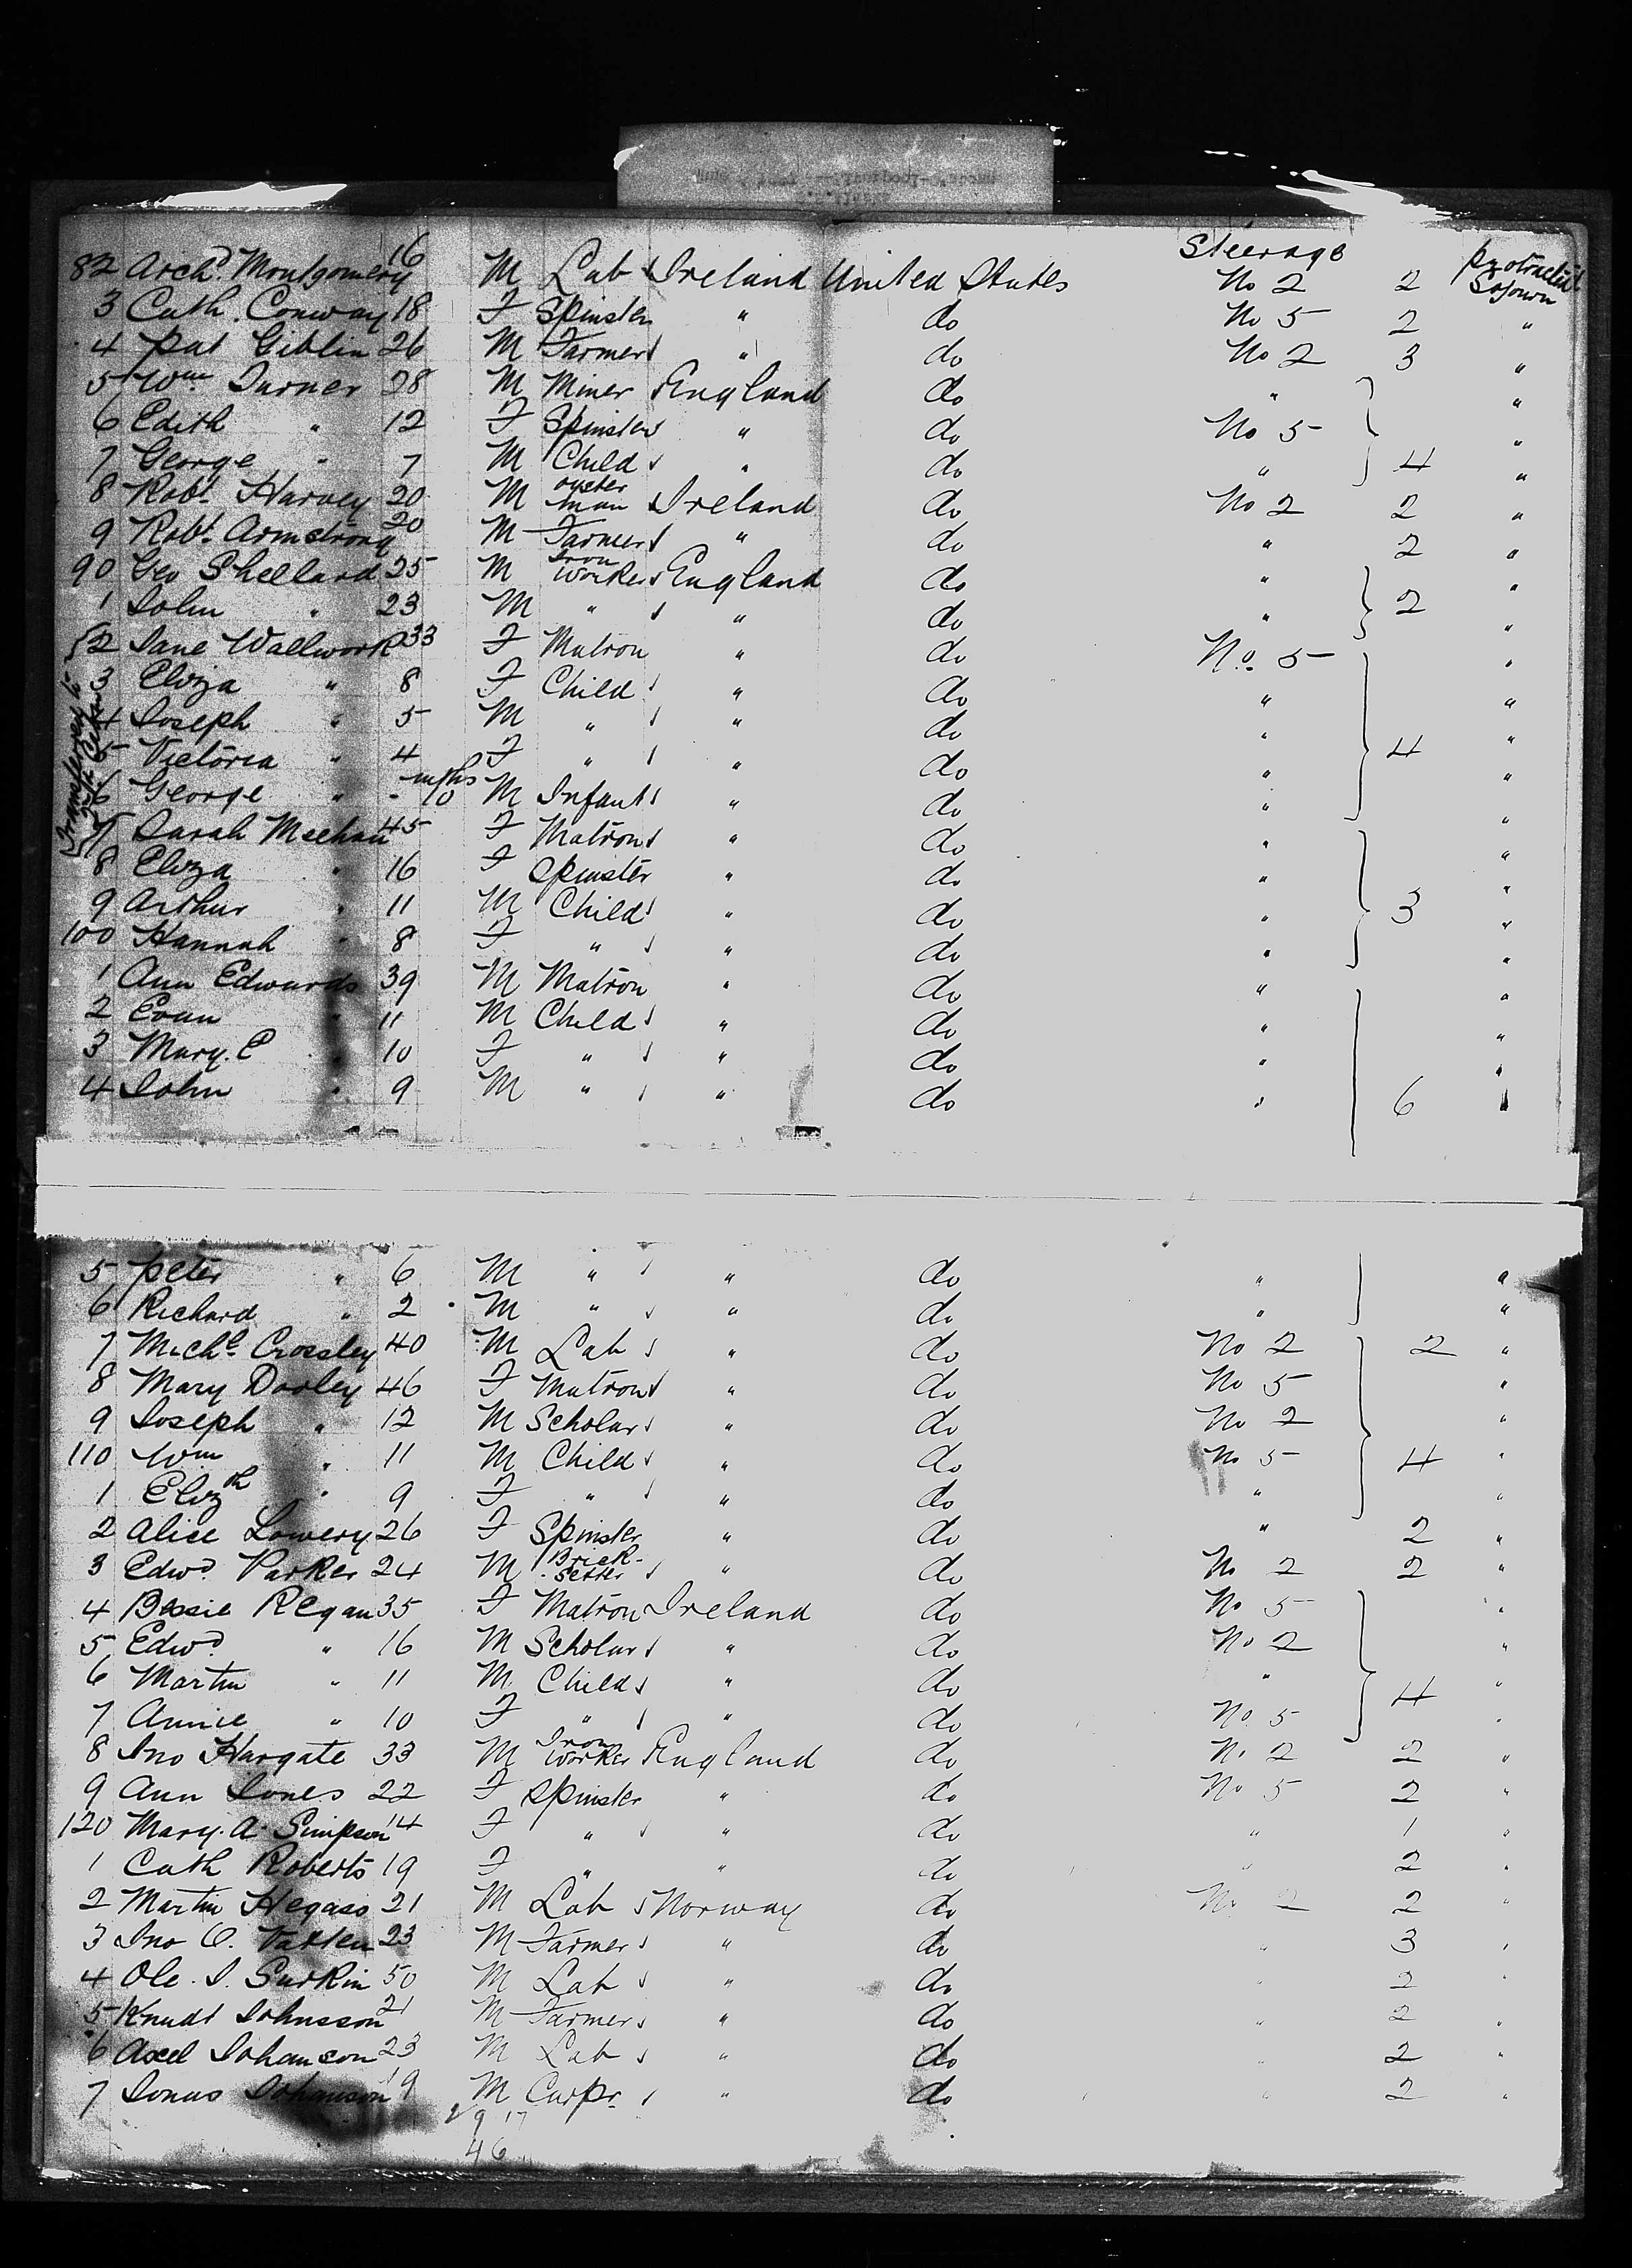 Steerage
82 Archd. Montgomery 16 M Lab Ireland United States No 2 2 protracted Sojourn
3 Cath. Conway 18 F Spinster " do No 5 2 "
4 Pat Giblin 26 M Farmer " do No 2 3 "
5 Wm. Turner 28 M Miner England do " "
6 Edith " 12 F Spinster " do No 5 "
7 George " 7 M Child " do " 4 "
8 Robt. Harvey 20 M oyster man Ireland do No 2 2 "
9 Robt. Armstrong 20 M Farmer " do " 2 "
90 Geo Shellard 25 M Iron Worker England do " "
1 John " 23 M " " do " 2 "
2 Jane Wallwork 33 F Matron " do No. 5 "
3 Eliza " 8 F Child " do " "
4 Joseph " 5 M " " do " "
5 Victoria " 4 F " " do " 4 "
6 George " - mths 10 M Infant " do " "
7 Sarah Meehan 45 F Matron " do " "
8 Eliza " 16 F Spinster " do " "
9 Arthur " 11 M Child " do " 3 "
100 Hannah " 8 F " " do " "
1 Ann Edwards 39 M Matron " do " "
2 Evan " 11 M Child " do " "
3 Mary. E " 10 F " " do " "
4 John " 9 M " " do " 6 "
5 Peter " 6 M " " do " "
6 Richard " 2 M " " do " "
7 Michl. Crossley 40 M Lab " do No 2 2 "
8 Mary Darley 46 F Matron " do No 5 "
9 Joseph " 12 M Scholar " do No 2 "
110 Wm " 11 M Child " do No 5 4 "
1 Elizth " 9 F " " do " "
2 Alice Lowery 26 F Spinster " do " 2 "
3 Edwd. Parker 24 M Brick-Setter " do No 2 2 "
4 Bessie Regan 35 F Matron Ireland do No 5 "
5 Edwd. " 16 M Scholar " do No 2 "
6 Martin " 11 M Child " do " 4 "
7 Annie " 10 F " " do No 5 "
8 Jno Hargate 33 M Iron Worker England do No 2 2 "
9 Ann Jones 22 F Spinster " do No 5 2 "
120 Mary. A. Simpson 14 F " " do " 1 "
1 Cath Roberts 19 F " " do " 2 "
2 Martin Hegaso 21 M Lab Norway do No 2 2 "
3 Jno O. 23 M Farmer " do " 3 "
4 Ole. J. Surkin 50 M Lab " do " 2 "
5 Knudt Johnsson 21 M Farmer " do " 2 "
6 Axel Johanson 23 M Lab " do " 2 "
7 Jonas Johanson 19 M Carpr. " do " 2 "
29 17
46